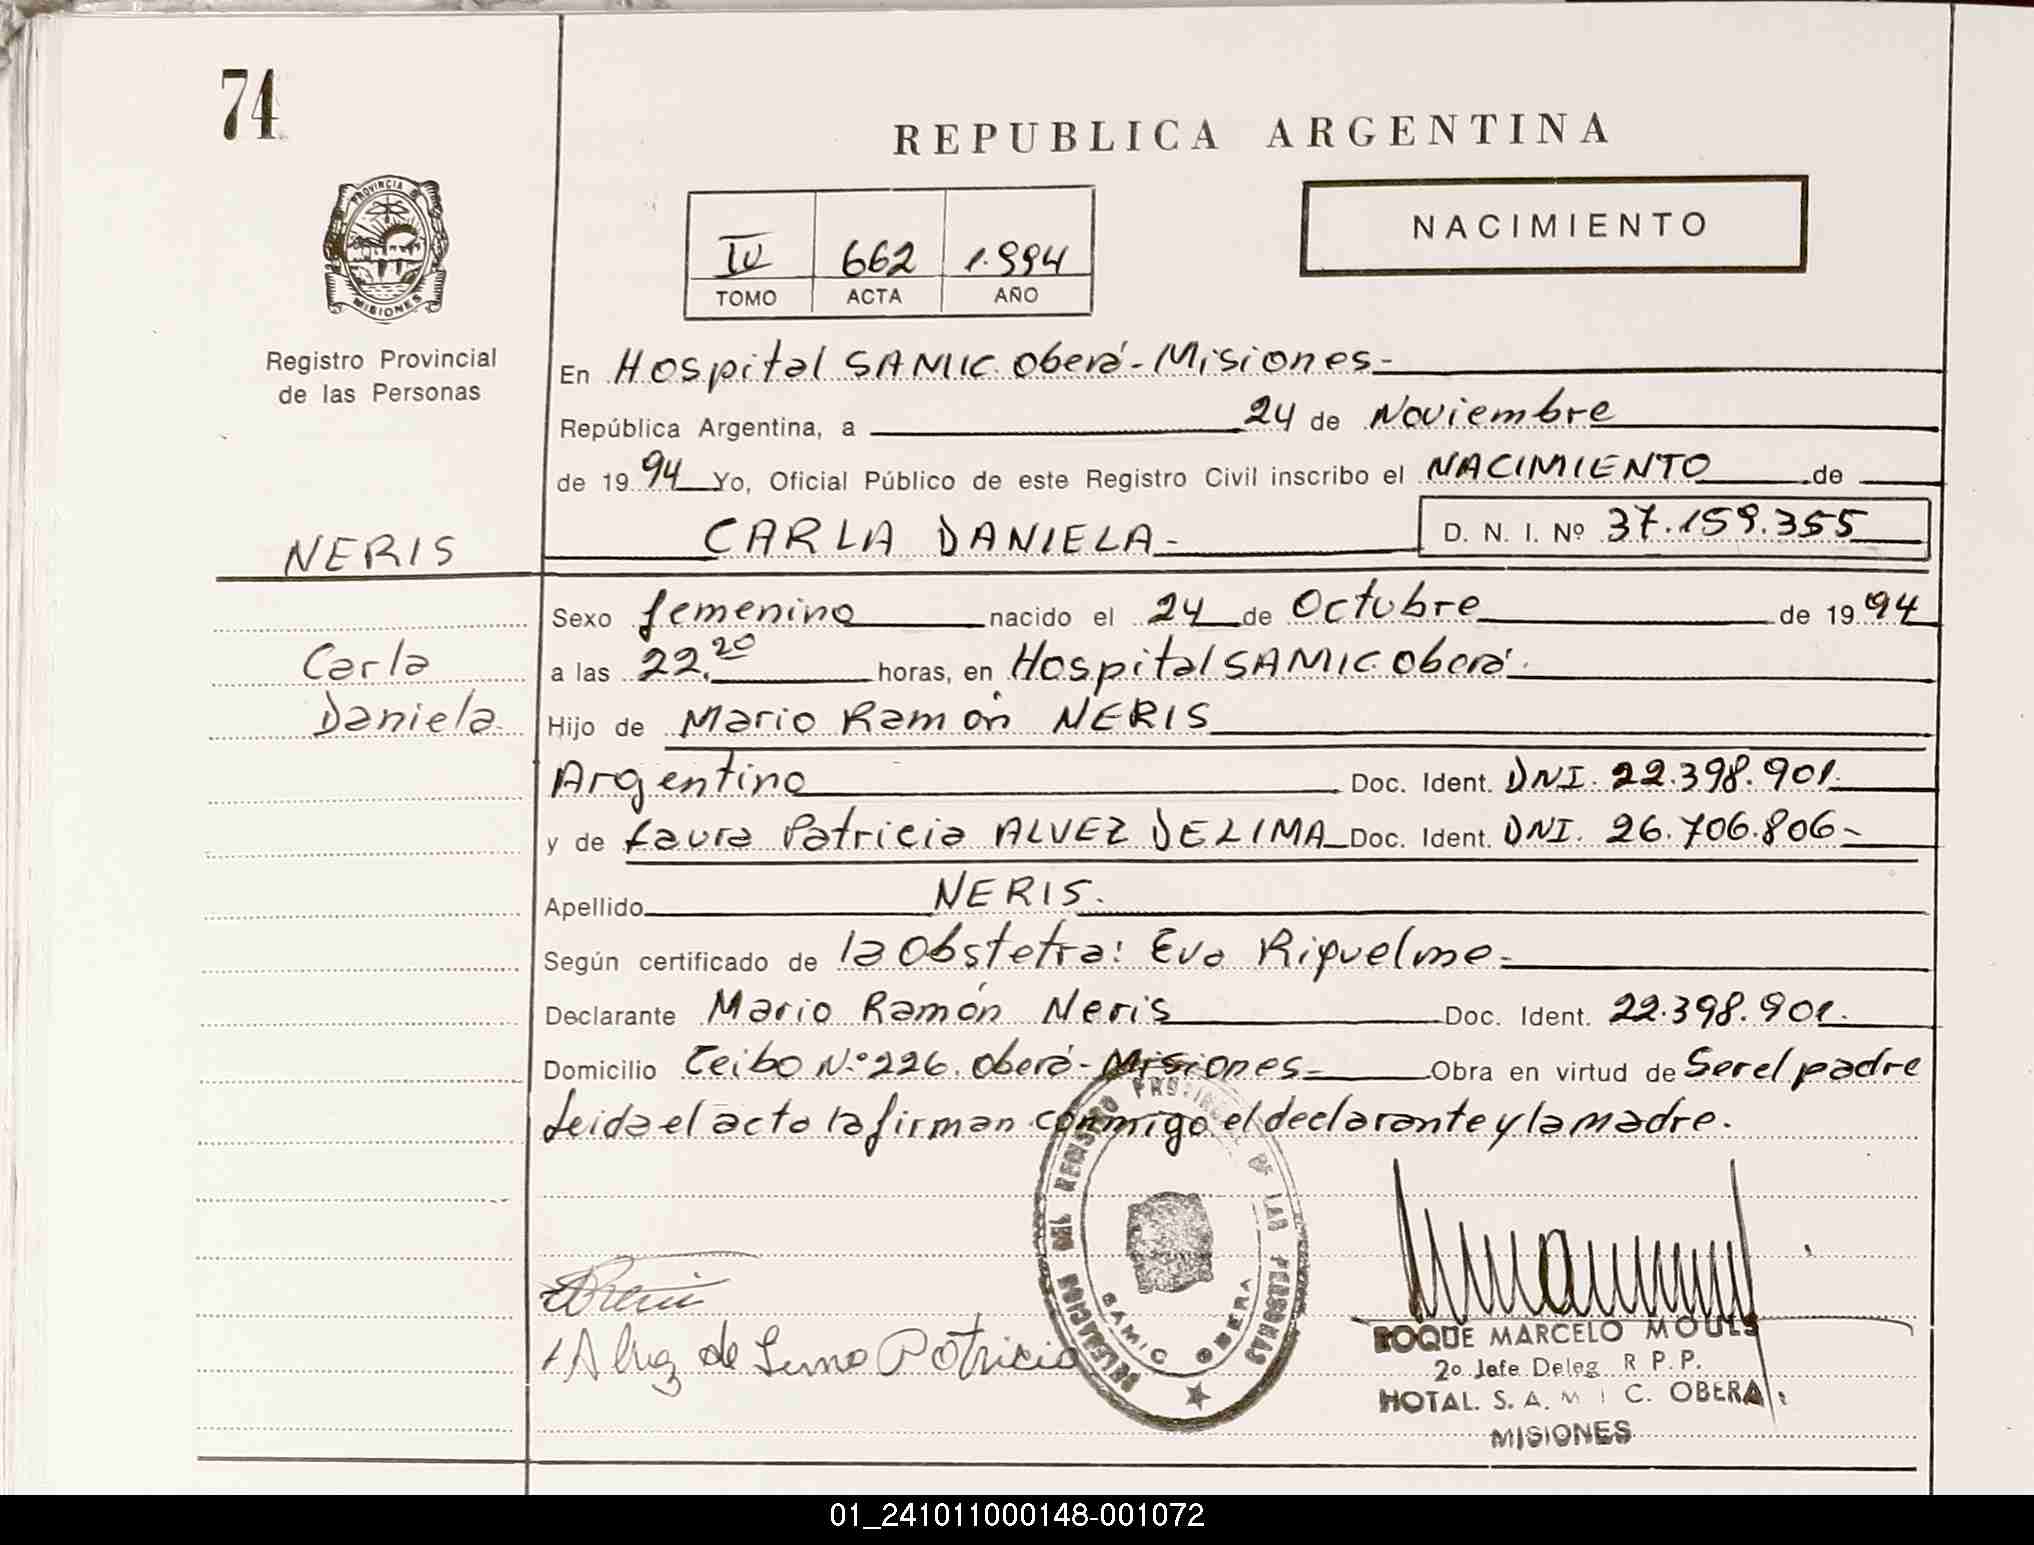 74
REPUBLICA ARGENTINA
PROVINCIA D
MISIONES
Registro Provincial
de las Personas
IV 662 1.994
TOMO ACTA AÑO
NACIMIENTO
En Hospital SAMIC. Oberá - Misiones -
República Argentina, a 24 de Noviembre
de 1994 Yo, Oficial Público de este Registro Civil inscribo el NACIMIENTO de
NERIS CARLA DANIELA - D. N. I. Nº 37.159.355
Sexo femenino nacido el 24 de Octubre de 1994
Carla a las 22.20 horas, en Hospital SAMIC Oberá.
Daniela. Hijo de Mario Ramón NERIS
Argentino Doc. Ident. DNI. 22.398.901.
y de Laura Patricia ALVEZ DE LIMA Doc. Ident. DNI. 26.706.806-
Apellido NERIS.
Según certificado de la Obstetra: Eva Riquelme -
Declarante Mario Ramón Neris Doc. Ident. 22.398.901.
Domicilio Ceibo N.º 226. Oberá - Misiones - Obra en virtud de Ser el padre
Leida el acto la firman conmigo el declarante y la madre.
DELEGACION DEL REGISTRO PROVINCIAL DE LAS PERSONAS
SAMIC OBERA
Alvez de Lima Patricia
ROQUE MARCELO MOULS
2º Jefe Deleg R P.P.
HOTAL. S. A. M I C. OBERA
MISIONES
01_241011000148-001072